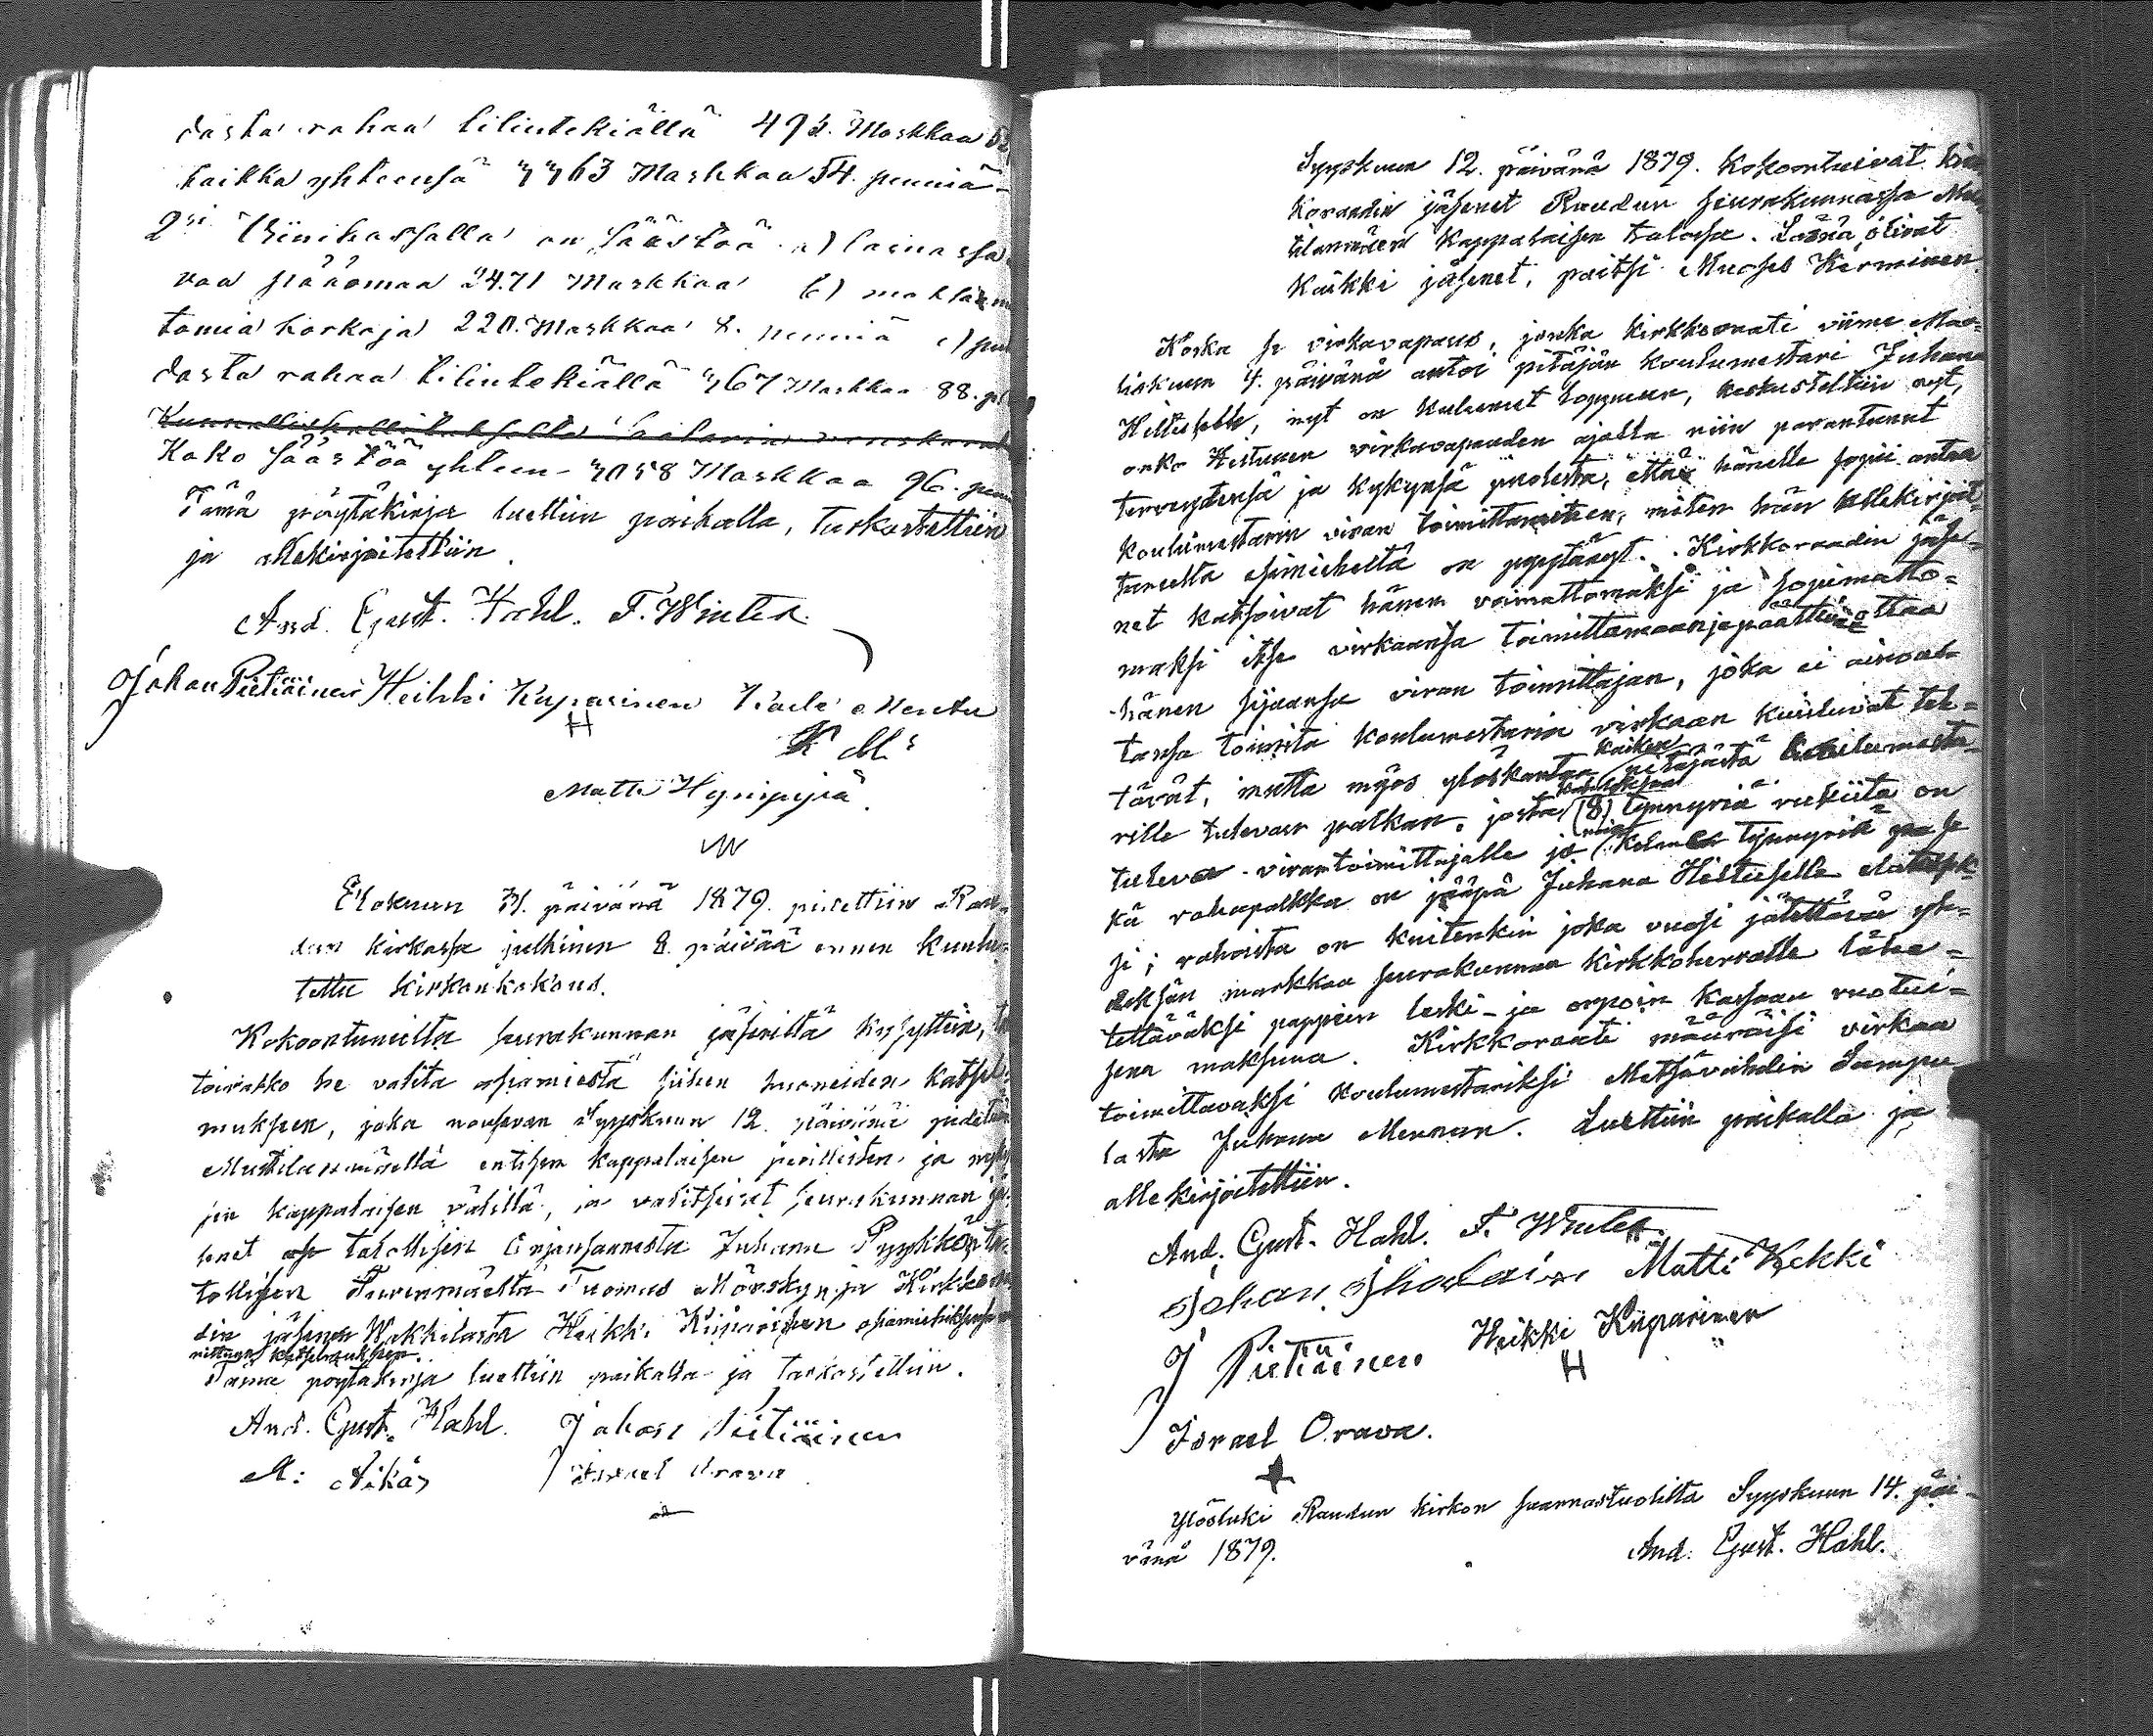 dasta rahaa tilintekiällä 493. Markkaa
kaikka yhteensä 4463 Markkaa 54. penniä
2si Viinikassalla on säästöä a) lainassa
vaa pääomaa 2471 Markkaa b) maksa
tomia korkoja 220. Markkaa 8. penniä c)
dasta rahaa tilintekiällä 467 Markkaa 88.
Koko säästöä yhteen - 3058 Markkaa 96.
Tämä pöytäkirja luettiin paikalla, tarkastettiin
ja allekirjoitettiin.
And. Gust. Hahl. F. Winter.
Johan Pietiäinen Heikki Kiiparinen
H
K M
Matti Hymppyä.
Elokuun 31. päivänä 1879. pidettiin Rau-
dun kirkossa julkinen 8. päivää ennen kuulu-
tettu kirkonkokous.
Kokoontuneilta seurakunnan jäseniltä kysyttiin,
toivatko he valita asiamiestä siihen huoneiden katsel-
muksen, joka nousevan Syyskuun 12. päivänä pidetään
Mustilanmäellä entisen kappalaisen perillisten ja
sen kappalaisen välillä, ja valitsivat seurakunnan jä-
senet talollisen Juhana Pyykkön
tollisen Tuomas Mörsky ja Kirkko
din jäsenen Wakkilasta Heikki Kiiparisen
nittuun katselmuksen.
Tämä pöytäkirja luettiin paikalla ja tarkastettiin.
And. Gust. Hahl. Johan Pietiäinen
M: Äikäs Israel Orava
Syyskuun 12. päivänä 1879. kokoontuivat
koraadin jäsenet Raudun seurakunnassa
tilanmäen kappalaisen talossa. Läsnä olivat
kaikki jäsenet, paitsi Kerminen.
Koska se virkavapaus, jonka kirkkoraati viime Maa-
liskuun 4. päivänä antoi pitäjän koulumestari Juhana
Hiltuselle, nyt on kulunut loppuun, keskusteltiin nyt,
onko Hiltunen virkavapauden ajalla niin parantunut
terveytensä ja kykynsä puolesta, että hänelle sopii antaa
koulumestarin viran toimittamisen, miten hän allekirjoit-
taneelta esimieheltä on pyytänyt. Kirkkoraadin jäse-
net katsoivat hänen voimattomaksi ja sopimatto-
maksi itse virkaansa toimittamaan ja päättivät ottaa
hänen sijaansa viran toimittajan, joka ei ainoas-
tansa toimita koulumestarin virkaan kuuluvat teh-
tävät, mutta myös ylöskantaa kaiken pitäjästä koulumesta-
rille tulevan palkan, josta kahdeksan (8) tynnyriä rukiita on
tuleva virantoimittajalle ja tynnyriä ja se
kä rahapalkka on jääpä Juhana Hiltuselle
si; rahoista on kuitenkin joka vuosi jätettävä yh-
deksän markkaa seurakunnan kirkkoherralle lähe-
tettäväksi pappein leski- ja orpoin kassaan vuotui-
sena maksuna. Kirkkoraati määräisi virkaa
toimittavaksi koulumestariksi Metsävahdin Sumpu
lasta Juhana Mennan. Luettiin paikalla ja
allekirjoitettiin.
And. Gust. Hahl. F. Winter.
Johan Matti Kekki
J Pietiäinen Heikki Kiiparinen
H
Israel Orava.
Ylösluki Raudun kirkon saarnastuolilta Syyskuun 14. päi-
vänä 1879. And. Gust. Hahl.